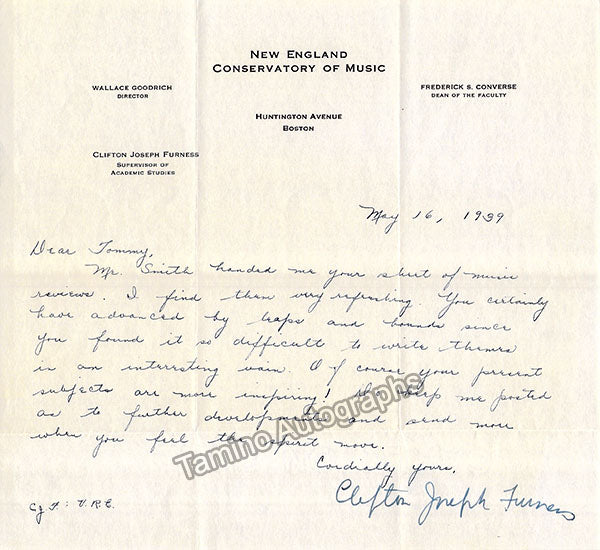 NEW ENGLAND
CONSERVATORY OF MUSIC
WALLACE GOODRICH
DIRECTOR
FREDERICK S. CONVERSE
DEAN OF THE FACULTY
HUNTINGTON AVENUE
BOSTON
CLIFTON JOSEPH FURNESS
SUPERVISOR OF
ACADEMIC STUDIES
May 16, 1939
Dear Tommy,
Mr. Smith handed me your sheet of music
reviews. I find them very refreshing. You certainly
have advanced by leaps and bounds since
you found it so difficult to write themes
in an interesting vain. Of course your present
subjects are more inspiring! Do keep me posted
as to further developments and send more
when you feel the spirit move.
Cordially yours,
Clifton Joseph Furness
CJF: V.R.E.
Tamino Autographs